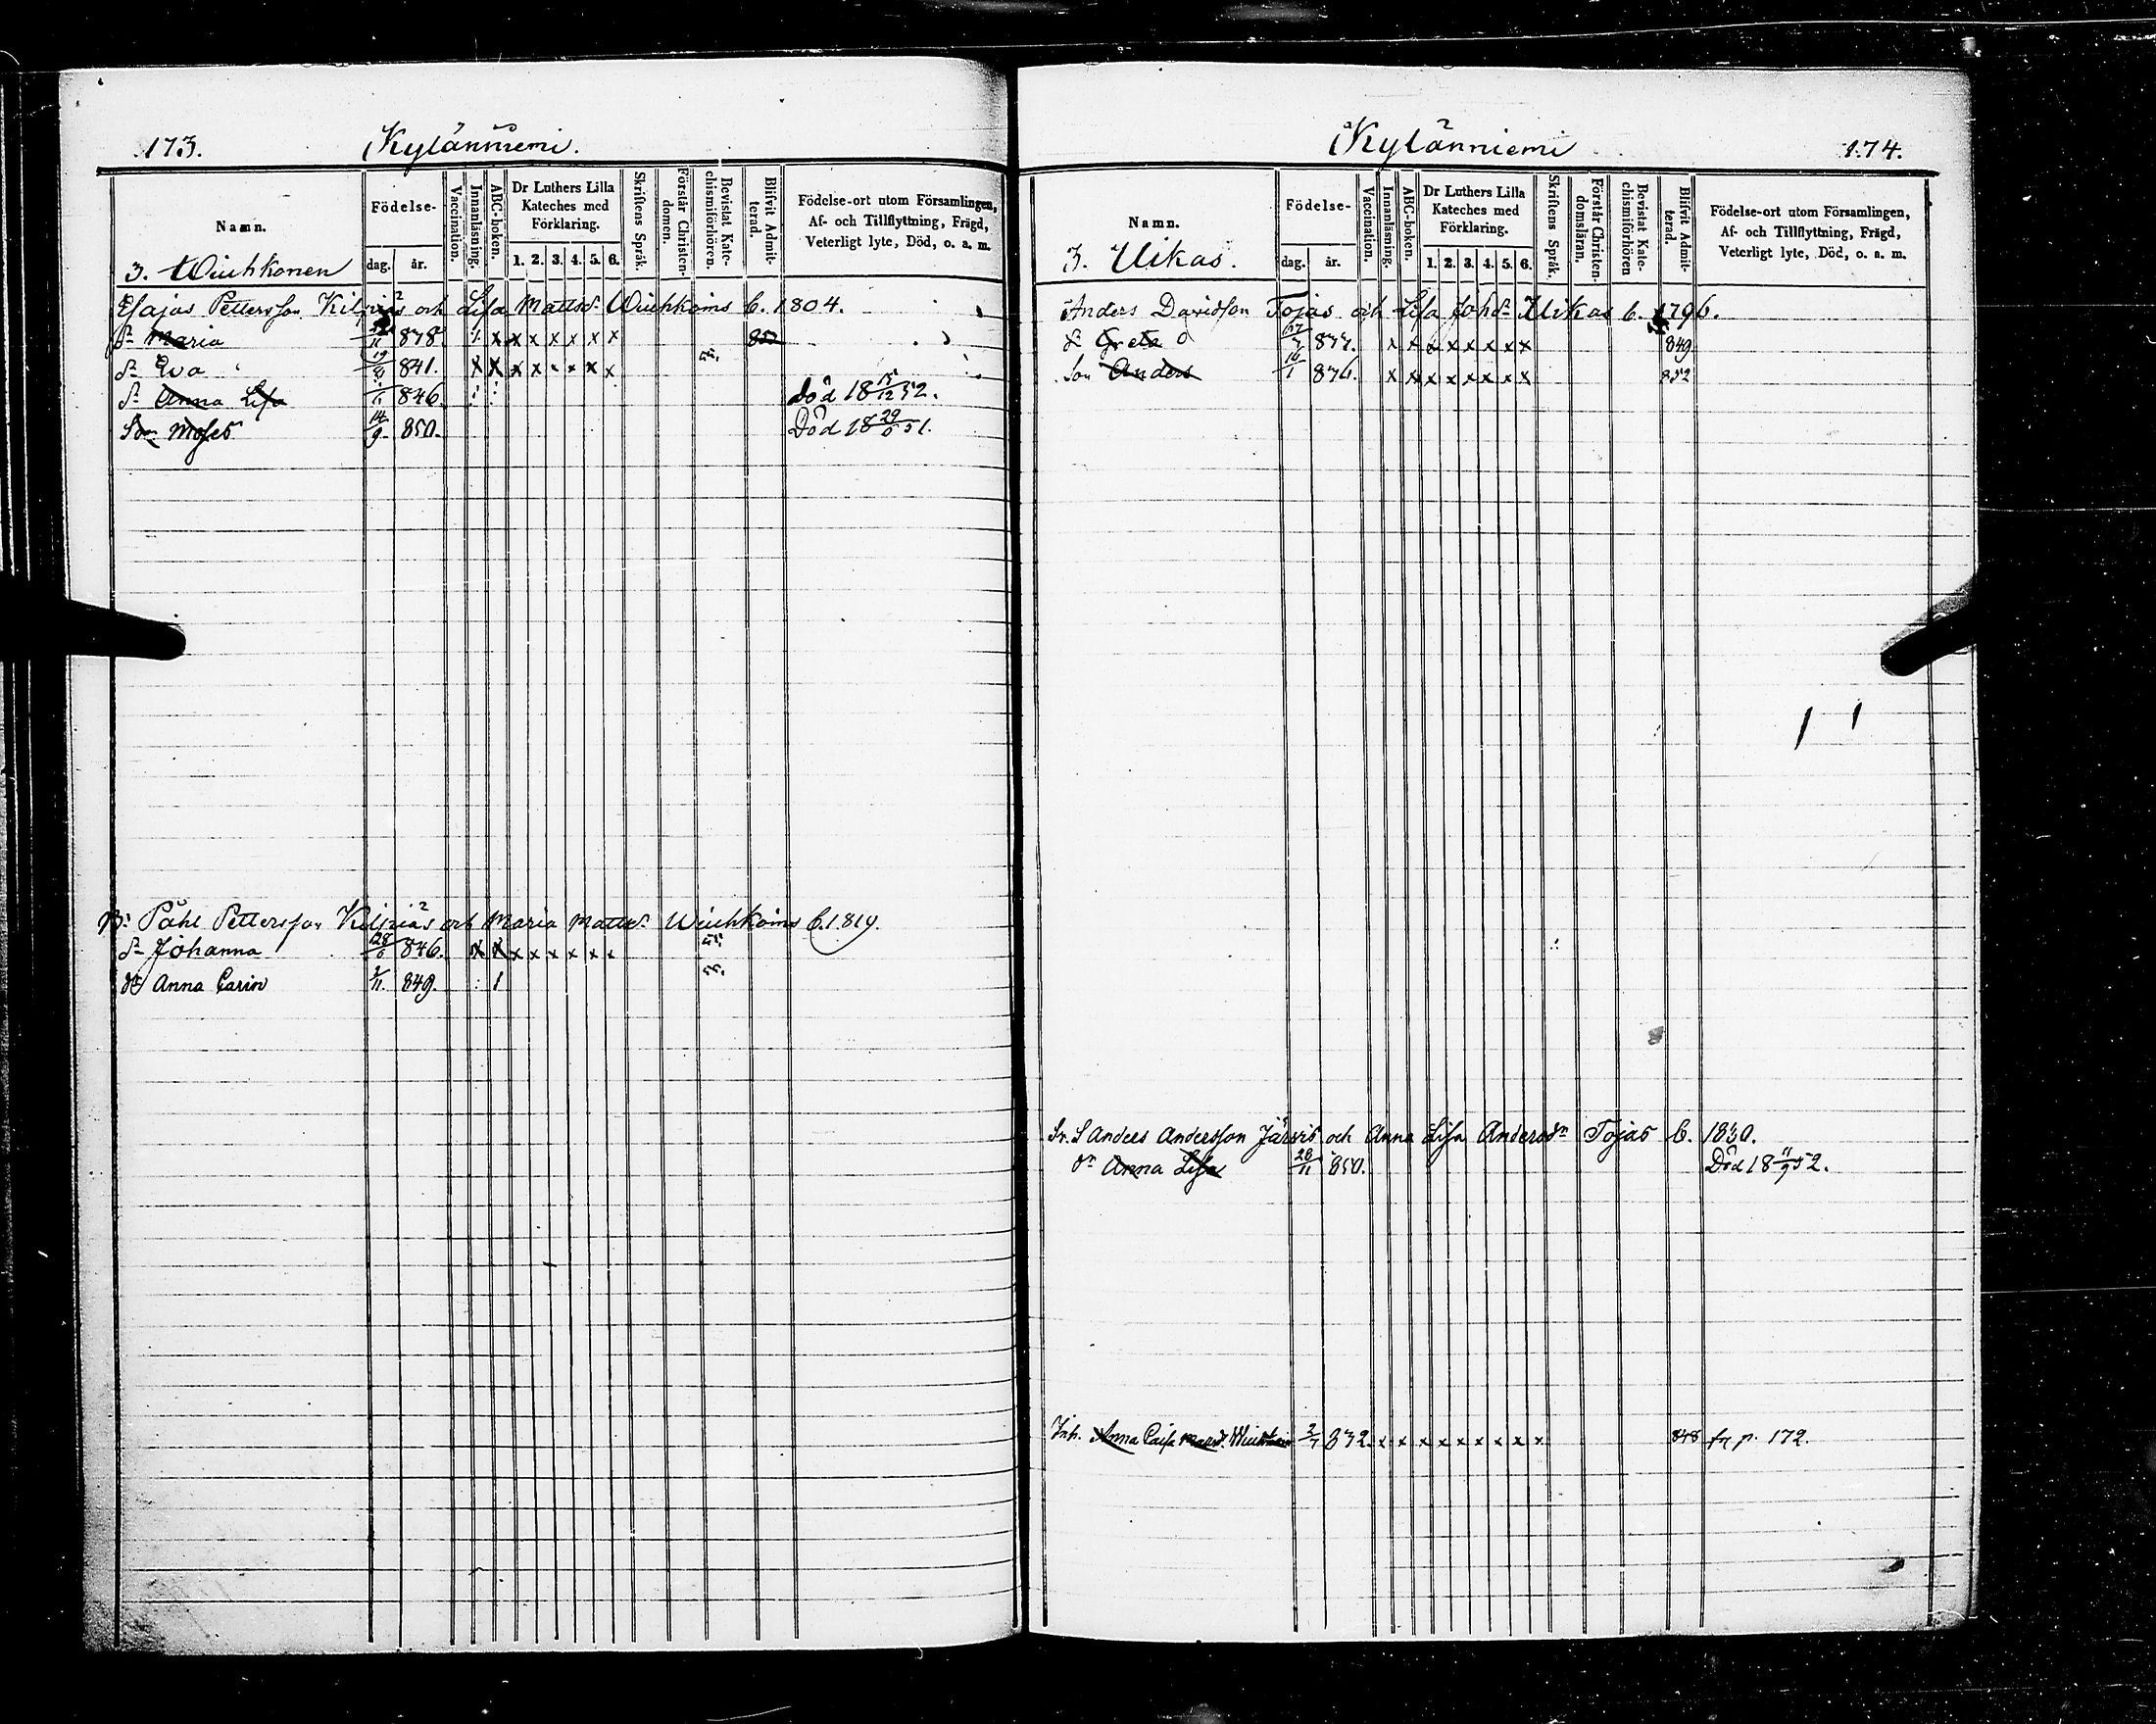 173.
Kylänniemi.
Namn.
Födelse-
dag. år.
Vaccination.
Innanläsning.
ABC-boken.
Dr Luthers Lilla
Kateches med
Förklaring.
1. 2. 3. 4. 5. 6.
Skriftens Språk.
Förstår Christen-
domen.
Bevistat Kate-
chismiförhören.
Blifvit Admit-
terad.
Födelse-ort utom Församlingen,
Af- och Tillflyttning, Frägd,
Veterligt lyte, Död, o. a. m.
3. Wiuhkonen
Esajas Pettersson Kilpiäs och Lisa Mattsdr Wiuhkoins b. 1804.
dr Maria 838. x x x x x x x
dr Eva 19 841. x x x x x x x x
dr Anna Lisa 846. död 18 15/12 52.
Son Moses 14/9 850. Död 18 29/5 51.
Påhl Pettersson Kilpiäs och Maria Mattsdr Wiuhkoins b. 1819.
dr Johanna 28/6 846. x x x x x x x x
dr Anna Carin 849. 1
Kylänniemi
174.
Namn.
Födelse-
dag. år.
Vaccination.
Innanläsning.
ABC-boken.
Dr Luthers Lilla
Kateches med
Förklaring.
1. 2. 3. 4. 5. 6.
Skriftens Språk.
Förstår Christen-
domsläran.
Bevistat Kate-
chismiförhören
Blifvit Admit-
terad.
Födelse-ort utom Församlingen,
Af- och Tillflyttning, Frägd,
Veterligt lyte, Död, o. a. m.
3. Uikas.
Anders Davidson Tojas och Lisa Johdr Uikas b. 1796.
dr Greta 17/7 833. x x x x x x x x 849
Son Anders 16/1 836. x x x x x x x x 852
Anders Andersson Järvis och Anna Lisa Andersdr Tojas b. 1830.
dr Anna Lisa 28/11 850. Död 18 11/9 52.
Inh. Anna Caisa 832. x x x x x x x x x 848 fr p. 172.